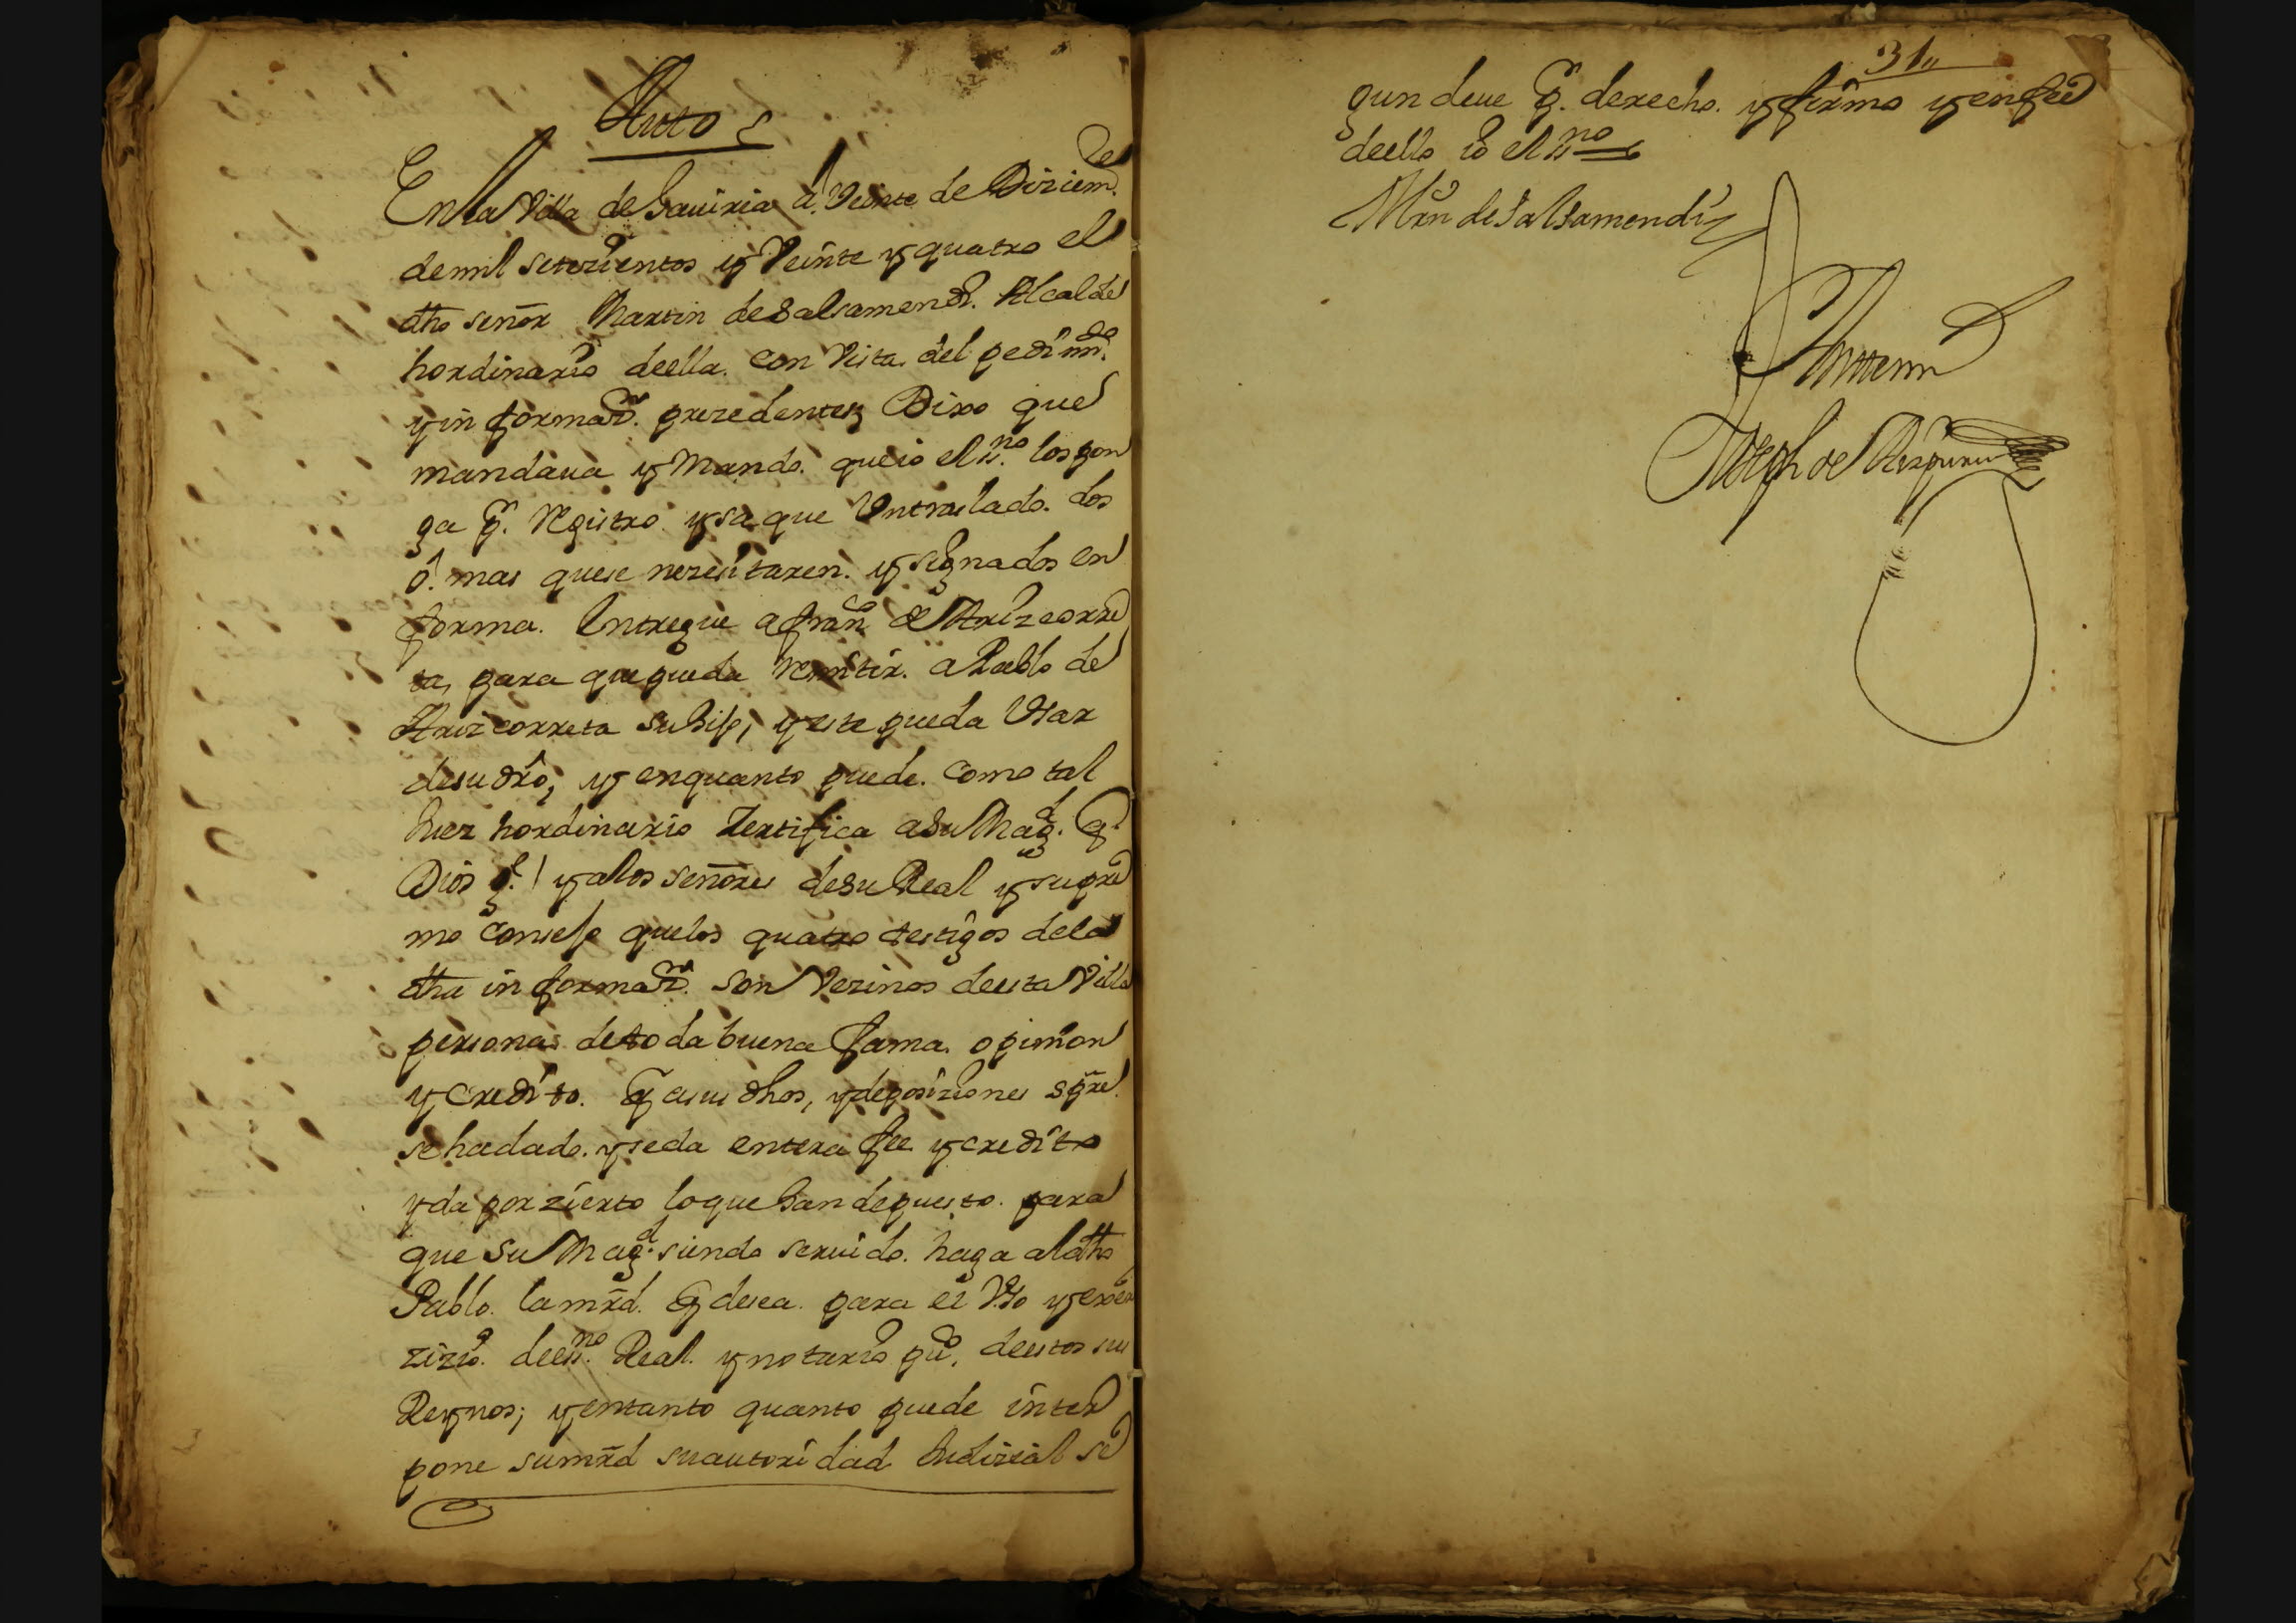 Auto
En la Villa de Gauiria a Veinte de Diziem.re
de mil setezientos y Veinte y quatro el
dho señor Martin de Salsamendi. Alcalde
hordinario de ella. con Vista. del pedimi.to
y informaz.n prezedentes Dixo que
mandaua y Mando. que io el ss.no los pon
ga p.r Registro y saque Vn traslado. dos
o. mas que se nezesitaren. y signados en
forma. Entregue a Fran.co de Arizcorre
ta, para que pueda Remitir. a Pablo de
Arizcorreta su hijo, y este pueda Vsar
de su dro, y en quanto puede. como tal
Juez hordinario Zertifica a Su Mag.d q.
Dios g.e y a los señores de su Real y supre
mo Consejo que los quatro testigos de la
dha informaz.n son Vezinos de esta Villa
personas de toda buena fama. opinion
y credito. q a sus dhos, y deposiziones spre.
se ha dado. y se da entera fee y credito
y da por zierto lo que han depuesto. para
que Su Mag.d siendo seruido. haga al dho
Pablo. la mrd. q desea. para el Vso y exer
zizio. de ess.no Real. y notario pu.co de estos sus
Reynos; y en tanto quanto puede inter
pone su mrd su autoridad Judizial se
31
gun deue p.r derecho. y firmo y en fee
de ello io el ss.no
Mrn de Salsamendi
Ante mi
Joseph de Aizpuru